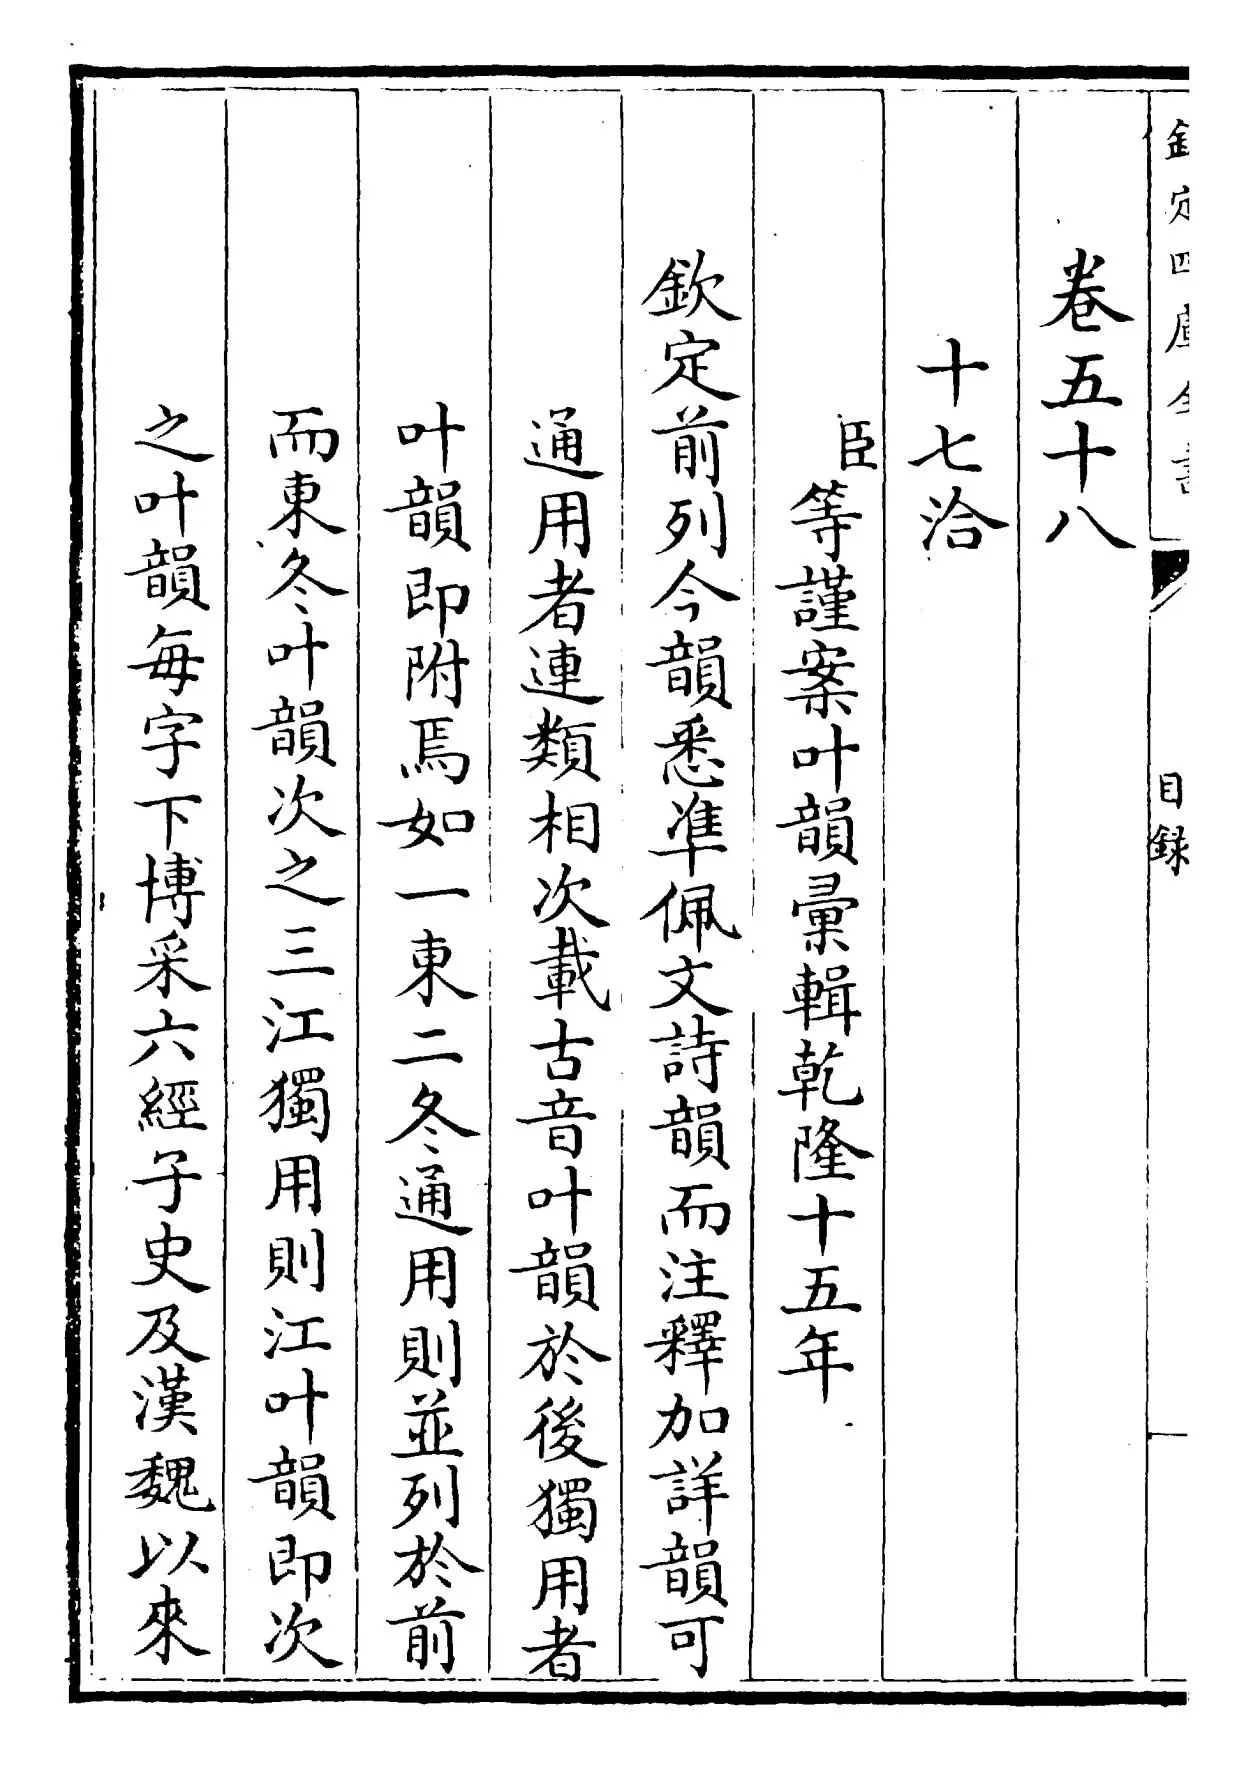 欽定四庫全書
目録
卷五十八
十七洽
臣等謹案叶韻彚輯乾隆十五年
欽定前列今韻悉凖佩文詩韻而注釋加詳韻可
通用者連類相次載古音叶韻於後獨用者
叶韻即附焉如一東二冬通用則並列於前
而東冬叶韻次之三江獨用則江叶韻即次
之叶韻每字下博采六經子史及漢魏以來